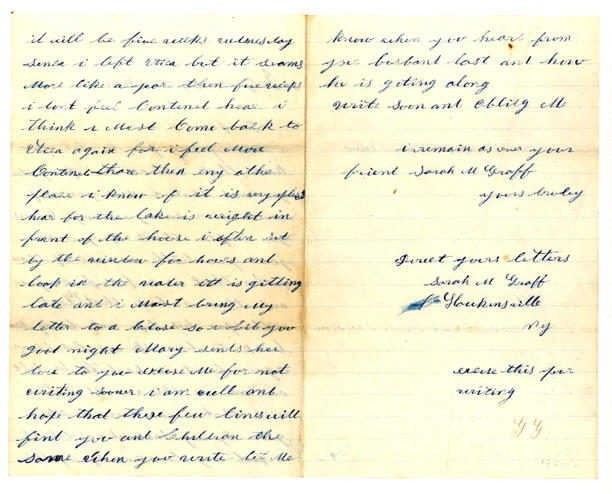 it will be five weeks wensday
senca i left Utica but it seams
More like a year then five weeks
i dont feel Contenet hear i
think i Most Come back to
Utica again for i feel More
Contenet thare then eny othe
place i know of it is very
hear for the lake is wright in
frant of the house i often sit
by the window for hours and
look in the water itt is gitting
late and i Most bring My
letter to a Close so i bid you
good night Mary sents her
love to you excuse Me for not
writing sooner i am well and
hope that these few lines will
find you and Children the
same When you write let Me
know when you hear from
your husband last and how
he is giting along
Write soon ant Oblidg Me
i remain as ever your
friend Sarah M Graff
yours truley
Direct yours letters
Sarah M Graff
Hawkinsville
Ny
excuse this pur
writing